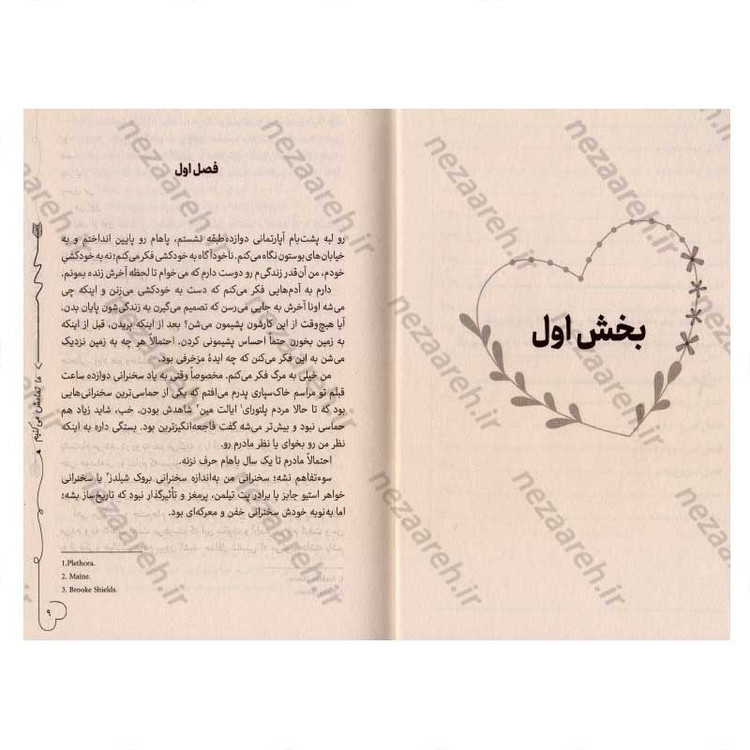 بخش اول
فصل اول
رو لبه پشت‌بام آپارتمانی دوازده‌طبقه نشستم، پاهام رو پایین انداختم و به
خیابان‌های بوستون نگاه می‌کنم. ناخودآگاه به خودکشی فکر می‌کنم؛ نه به خودکشی
خودم، من آن‌قدر زندگی‌م رو دوست دارم که می‌خوام تا لحظه آخرش زنده بمونم.
دارم به آدم‌هایی فکر می‌کنم که دست به خودکشی می‌زنن و اینکه چی
می‌شه اونا آخرش به جایی می‌رسن که تصمیم می‌گیرن به زندگی‌شون پایان بدن.
آیا هیچ‌وقت از این کارشون پشیمون می‌شن؟ بعد از اینکه پریدن، قبل از اینکه
به زمین بخورن حتماً احساس پشیمونی کردن. احتمالاً هر چه به زمین نزدیک
می‌شن به این فکر می‌کنن که چه ایدهٔ مزخرفی بود.
من خیلی به مرگ فکر می‌کنم. مخصوصاً وقتی به یاد سخنرانی دوازده ساعت
قبلم تو مراسم خاک‌سپاری پدرم می‌افتم که یکی از حماسی‌ترین سخنرانی‌هایی
بود که تا حالا مردم پلتورای۱ ایالت مین۲ شاهدش بودن. خب، شاید زیاد هم
حماسی نبود و بیش‌تر می‌شه گفت فاجعه‌انگیزترین بود. بستگی داره به اینکه
نظر من رو بخوای یا نظر مادرم رو.
احتمالاً مادرم تا یک سال باهام حرف نزنه.
سوءتفاهم نشه؛ سخنرانی من به‌اندازه سخنرانی بروک شیلدز۳ یا سخنرانی
خواهر استیو جابز یا برادر پت تیلمن، پرمغز و تأثیرگذار نبود که تاریخ‌ساز بشه؛
اما به‌نوبه خودش سخنرانی خفن و معرکه‌ای بود.
1.Plethora.
2. Maine.
3. Brooke Shields.
ما تمامش می‌کنیم
۹
nezaareh.ir
nezaareh.ir
nezaareh.ir
nezaareh.ir
nezaareh.ir
nezaareh.ir
nezaareh.ir
nezaareh.ir